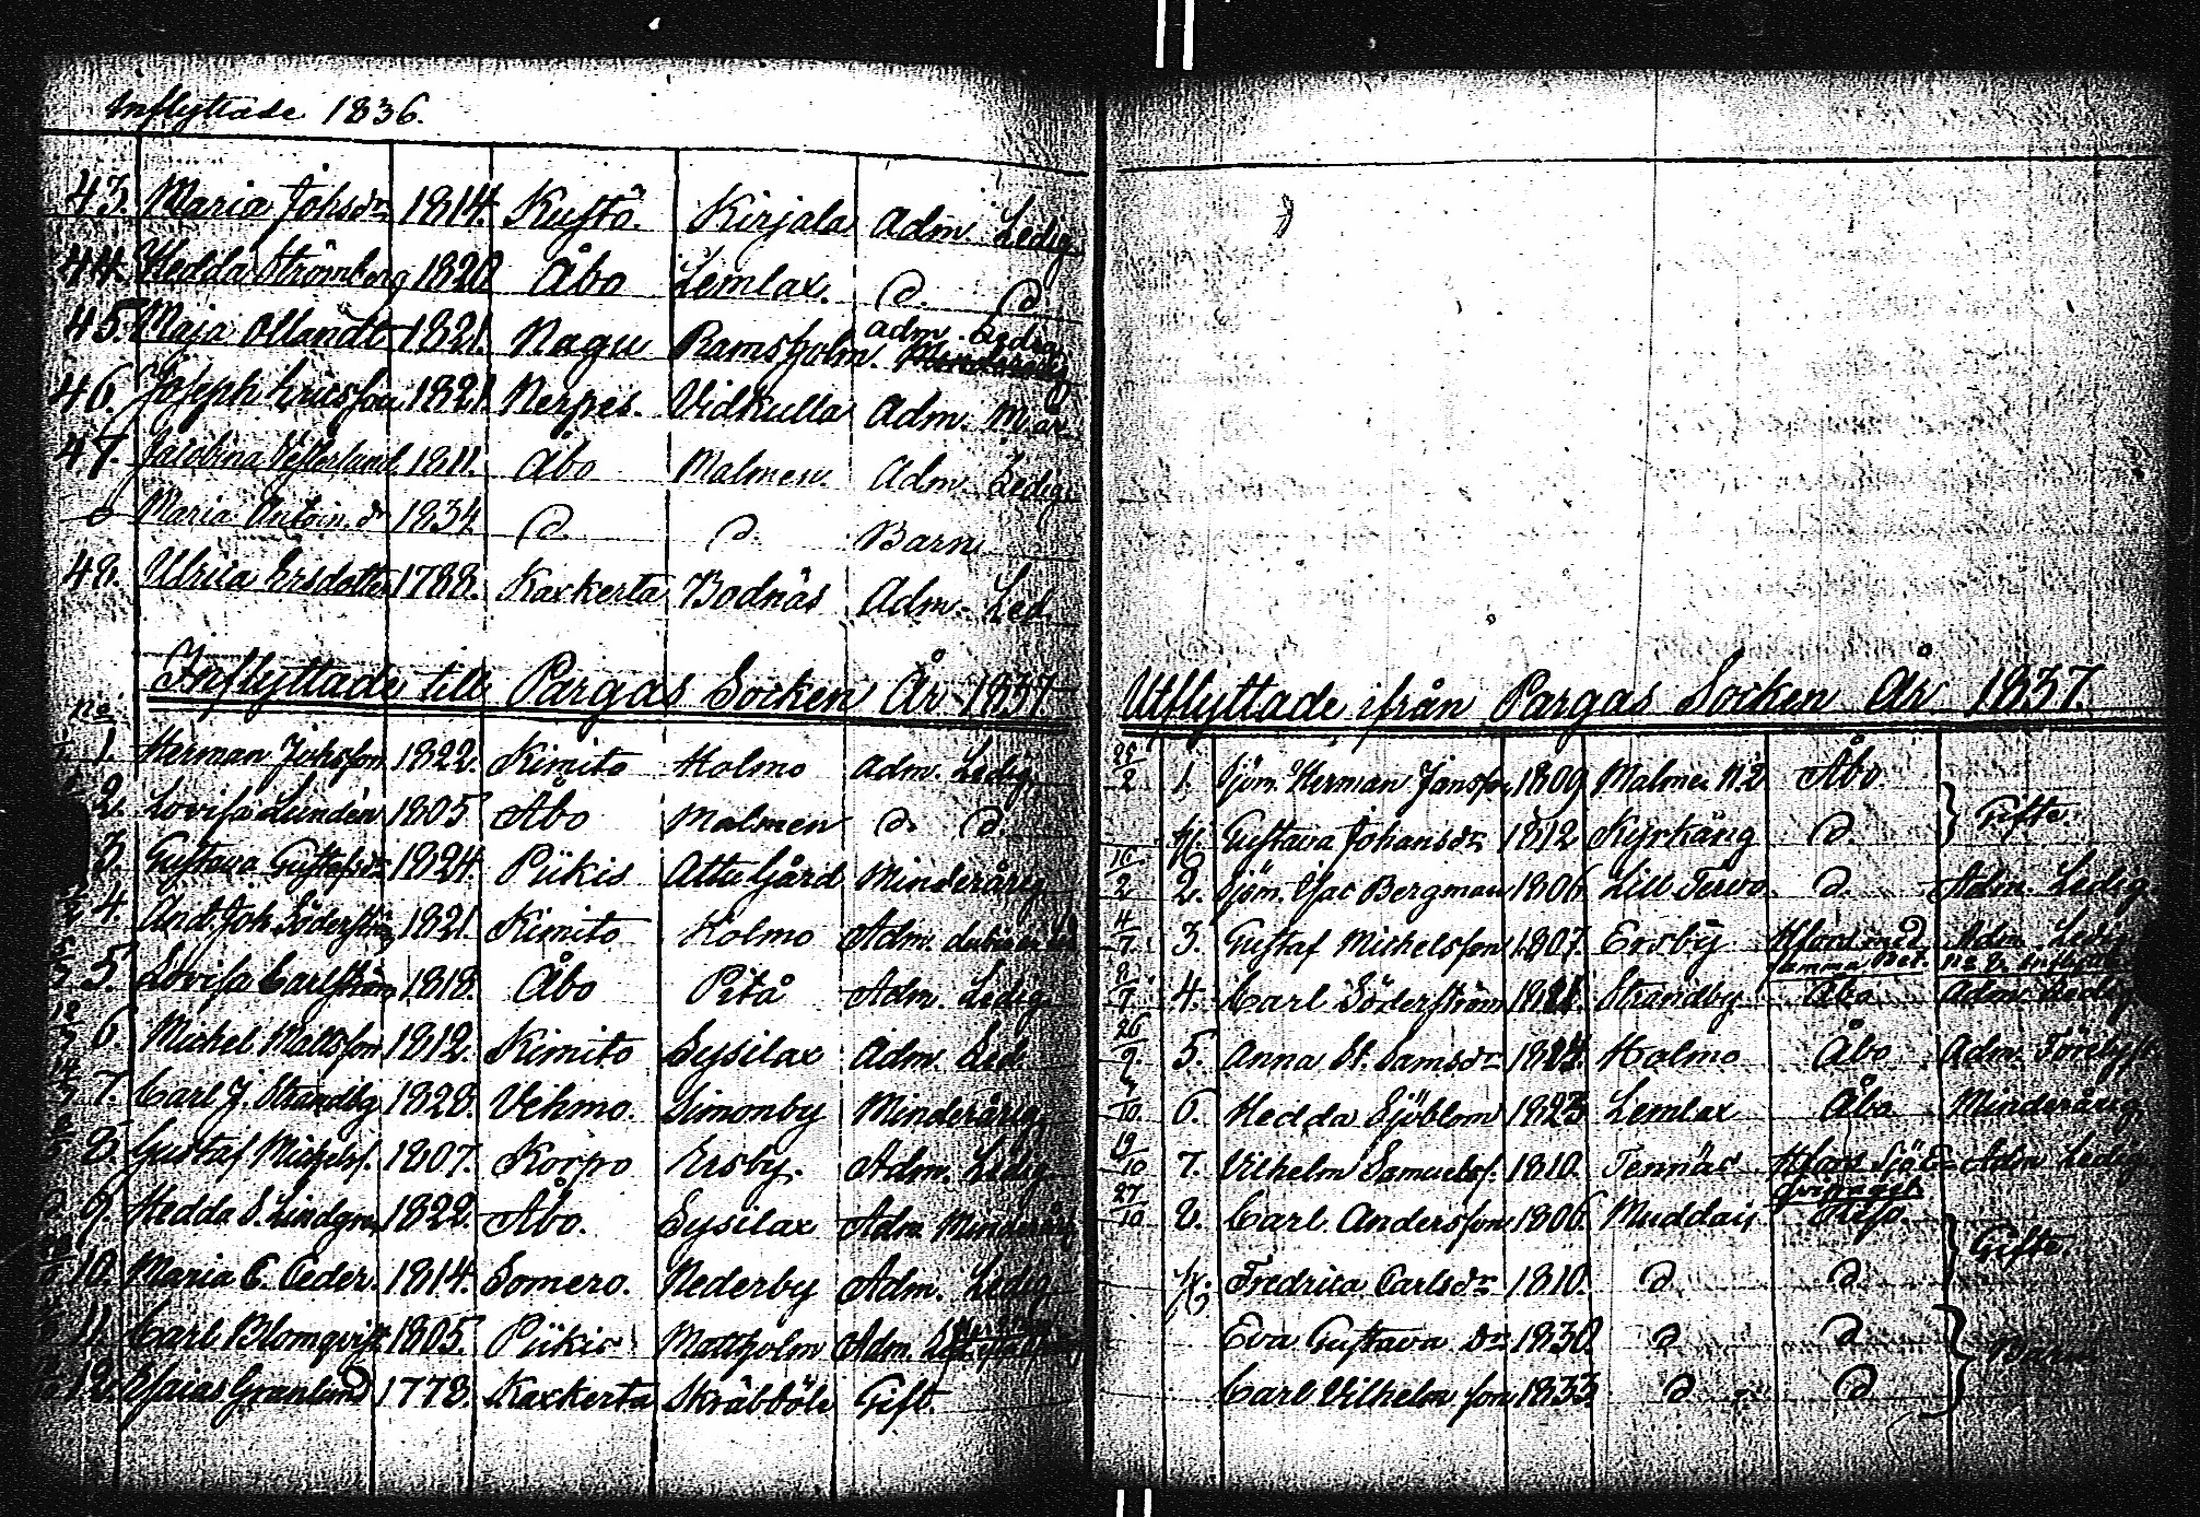 Inflyttade 1836.
43. Maria Johsdr 1814. Kustö. Kirjala Adm. Ledig.
44. Hedda Strömberg 1820 Åbo Lemlax. D. D
45. Maja Ollandt 1821. Nagu Ramsholm. adm. Ledig
46. Joseph Ericsson 1821. Nerpes. Vidkulla Adm. M.år
47. Jacobina Vesterlund 1811. Åbo Malmen Adm. Ledig.
Maria Antoin. dr 1834 D. D. Barn
48. Ulrica Ersdotter 1788. Kaxkerta Bodnäs Adm. Led.
Inflyttade till Pargas Socken År 1837
No
1. Herman Johsson 1822. Kimito Holmo Adm. Ledig.
2. Lovisa Lundén 1805 Åbo Malmen D. D.
3. Gustava Gustafsdr 1824. Piikis Attu Gård Minderårig
4. And. Joh. Söderström 1821. Kimito Holmo Adm.
5. Lovisa Carlström 1818. Åbo Pitå Adm. Ledig
6. Michel Mattsson 1812. Kimito Sysilax Adm. Led.
7. Carl J. Strandbg 1828. Vehmo. Simonby Minderårig
8. Gustaf Michelss. 1807. Korpo Ersby. Adm. Ledig
9. Hedda S. Lindgren 1822. Åbo. Sysilax Adm. Minderårig
10. Maria C. Ceder. 1814. Somero. Nederby Adm. Ledig
11. Carl Blomqvist 1805. Piikis Mattholm Adm.
12. Esaias Granlund 1778. Kaxkerta Skräbböle Gift.
Utflyttade ifrån Pargas Socken År 1837.
1. Sjöm. Herman Jansson 1809 Malmen N:2 Åbo.
H. Gustava Johansdr 1812 Kyrkäng D. } Gifte.
16/2 2. Sjöm. Isac Bergman 1806. Lill Tervo D. Adm. Ledig
4/7 3. Gustaf Michelsson 1807. Ersby Adm. Ledig
samma Bet. No 8. Inflytt.
4. Carl Söderström 1821. Strandby Åbo Adm. Ledig
26/9. 5. Anna St. Samsdr Holmo Åbo Adm.
6. Hedda Sjöblom 1823 Lemlax Åbo Minderårig
19/10 7. Vilhelm Samuelss. 1810. Tennäs Adm. Ledig
27/10 8. Carl Andersson 1806. Muddais
H. Fredrica Carlsdr 1810. D. D. } Gifte.
Eva Gustava dr 1830. D D
Carl Vilhelm son 1833. D D } Barn